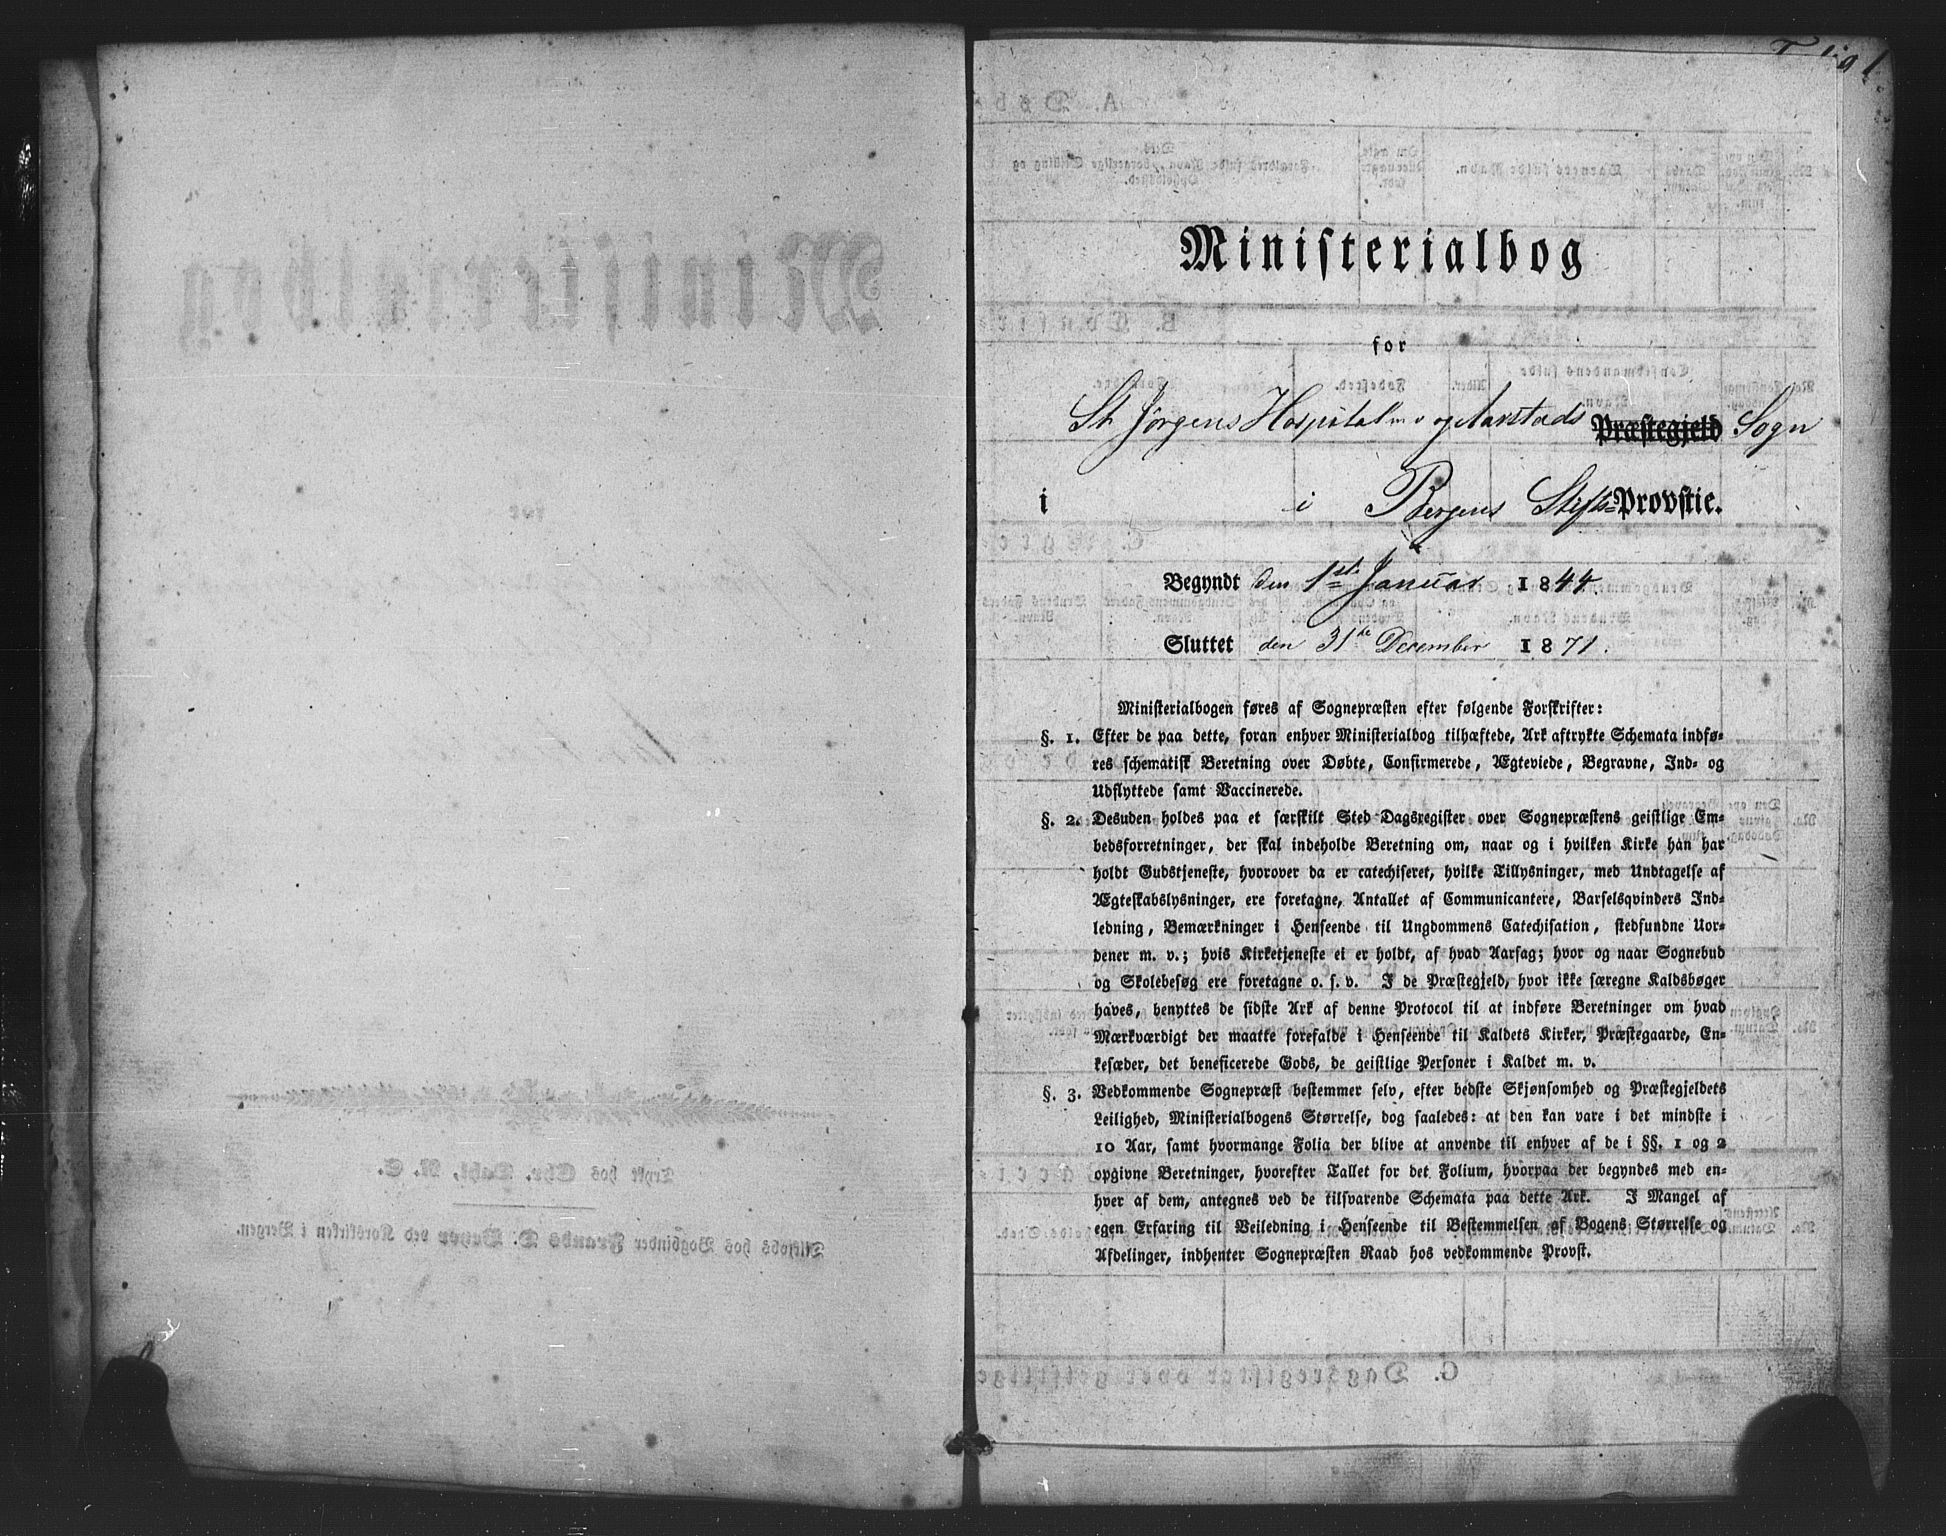 Ministerialbog
for
St Jørgens Hospital og Aarstads Præstegjeld Sogn
i i Bergens Stifts=Provstie.
Begyndt den 1ste Januar 1844.
Sluttet den 31te December 1871.
Ministerialbogen føres af Sognepræsten efter følgende Forskrifter:
§. 1. Efter de paa dette, foran enhver Ministerialbog tilhæftede, Ark aftrykte Schemata indfø-
res schematisk Beretning over Døbte, Confirmerede, Ægteviede, Begravne, Ind- og
Udflyttede samt Vaccinerede.
§. 2. Desuden holdes paa et særskilt Sted Dagsregister over Sognepræstens geistlige Em-
bedsforretninger, der skal indeholde Beretning om, naar og i hvilken Kirke han har
holdt Gudstjeneste, hvorover da er catechiseret, hvilke Tillysninger, med Undtagelse af
Ægteskabslysninger, ere foretagne, Antallet af Communicantere, Barselqvinders Ind-
ledning, Bemærkninger i Henseende til Ungdommens Catechisation, stedfundne Uor-
dener m. v.; hvis Kirketjeneste ei er holdt, af hvad Aarsag; hvor og naar Sognebud
og Skolebesøg ere foretagne o. s. v. I de Præstegjeld, hvor ikke særegne Kaldsbøger
haves, benyttes de sidste Ark af denne Protocol til at indføre Beretninger om hvad
Mærkværdigt der maatte forefalde i Henseende til Kaldets Kirker, Præstegaarde, En-
kesæder, det beneficerede Gods, de geistlige Personer i Kaldet m. v.
§. 3. Vedkommende Sognepræst bestemmer selv, efter bedste Skjønsomhed og Præstegjeldets
Leilighed, Ministerialbogens Størrelse, dog saaledes: at den kan vare i det mindste i
10 Aar, samt hvormange Folia der blive at anvende til enhver af de i §§. 1 og 2
opgivne Beretninger, hvorefter Tallet for det Folium, hvorpaa der begyndes med en-
hver af dem, antegnes ved de tilsvarende Schemata paa dette Ark. I Mangel af
egen Erfaring til Veiledning i Henseende til Bestemmelsen af Bogens Størrelse og
Afdelinger, indhenter Sognepræsten Raad hos vedkommende Provst.